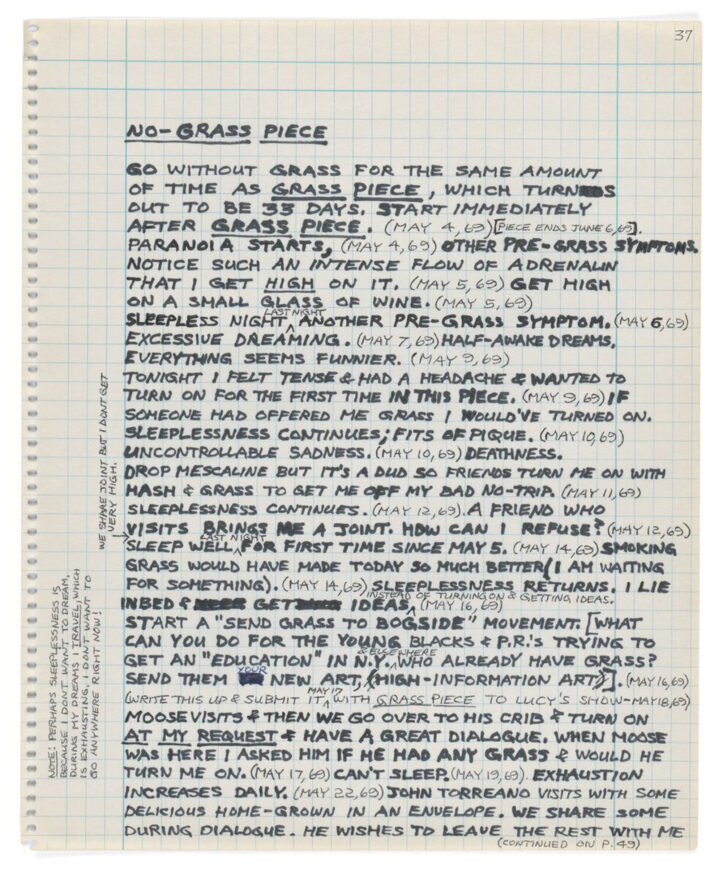 37
NO-GRASS PIECE
GO WITHOUT GRASS FOR THE SAME AMOUNT
OF TIME AS GRASS PIECE, WHICH TURNS
OUT TO BE 33 DAYS. START IMMEDIATELY
AFTER GRASS PIECE. (MAY 4, 69) [PIECE ENDS JUNE 6, 69].
PARANOIA STARTS, (MAY 4, 69) OTHER PRE-GRASS SYMPTOMS.
NOTICE SUCH AN INTENSE FLOW OF ADRENALIN
THAT I GET HIGH ON IT. (MAY 5, 69) GET HIGH
ON A SMALL GLASS OF WINE. (MAY 5, 69)
LAST NIGHT
SLEEPLESS NIGHT, ANOTHER PRE-GRASS SYMPTOM. (MAY 6, 69)
EXCESSIVE DREAMING. (MAY 7, 69) HALF-AWAKE DREAMS.
EVERYTHING SEEMS FUNNIER. (MAY 9, 69)
TONIGHT I FELT TENSE & HAD A HEADACHE & WANTED TO
TURN ON FOR THE FIRST TIME IN THIS PIECE. (MAY 9, 69) IF
SOMEONE HAD OFFERED ME GRASS I WOULD'VE TURNED ON.
SLEEPLESSNESS CONTINUES; FITS OF PIQUE. (MAY 10, 69)
UNCONTROLLABLE SADNESS. (MAY 10, 69) DEATHNESS.
DROP MESCALINE BUT IT'S A DUD SO FRIENDS TURN ME ON WITH
HASH & GRASS TO GET ME OFF MY BAD NO-TRIP. (MAY 11, 69)
SLEEPLESSNESS CONTINUES. (MAY 12, 69). A FRIEND WHO
VISITS BRINGS ME A JOINT. HOW CAN I REFUSE? (MAY 12, 69)
LAST NIGHT
SLEEP WELL FOR FIRST TIME SINCE MAY 5. (MAY 14, 69) SMOKING
GRASS WOULD HAVE MADE TODAY SO MUCH BETTER (I AM WAITING
FOR SOMETHING). (MAY 14, 69) SLEEPLESSNESS RETURNS. I LIE
INSTEAD OF TURNING ON & GETTING IDEAS.
IN BED & GET IDEAS (MAY 16, 69)
START A "SEND GRASS TO BOGSIDE" MOVEMENT. [WHAT
CAN YOU DO FOR THE YOUNG BLACKS & P.R.'S TRYING TO
& ELSEWHERE
GET AN "EDUCATION" IN N.Y. WHO ALREADY HAVE GRASS?
YOUR
SEND THEM NEW ART, (HIGH-INFORMATION ART)]. (MAY 16, 69)
MAY 17
(WRITE THIS UP & SUBMIT IT WITH GRASS PIECE TO LUCY'S SHOW-MAY 18, 69)
MOOSE VISITS & THEN WE GO OVER TO HIS CRIB & TURN ON
AT MY REQUEST & HAVE A GREAT DIALOGUE. WHEN MOOSE
WAS HERE I ASKED HIM IF HE HAD ANY GRASS & WOULD HE
TURN ME ON. (MAY 17, 69) CAN'T SLEEP. (MAY 19, 69). EXHAUSTION
INCREASES DAILY. (MAY 22, 69) JOHN TORREANO VISITS WITH SOME
DELICIOUS HOME-GROWN IN AN ENVELOPE. WE SHARE SOME
DURING DIALOGUE. HE WISHES TO LEAVE THE REST WITH ME
(CONTINUED ON P. 49)
WE SHARE JOINT BUT I DON'T GET
VERY HIGH.
NOTE: PERHAPS SLEEPLESSNESS IS
BECAUSE I DON'T WANT TO DREAM.
DURING MY DREAMS I TRAVEL, WHICH
IS EXHAUSTING. I DON'T WANT TO
GO ANYWHERE RIGHT NOW!